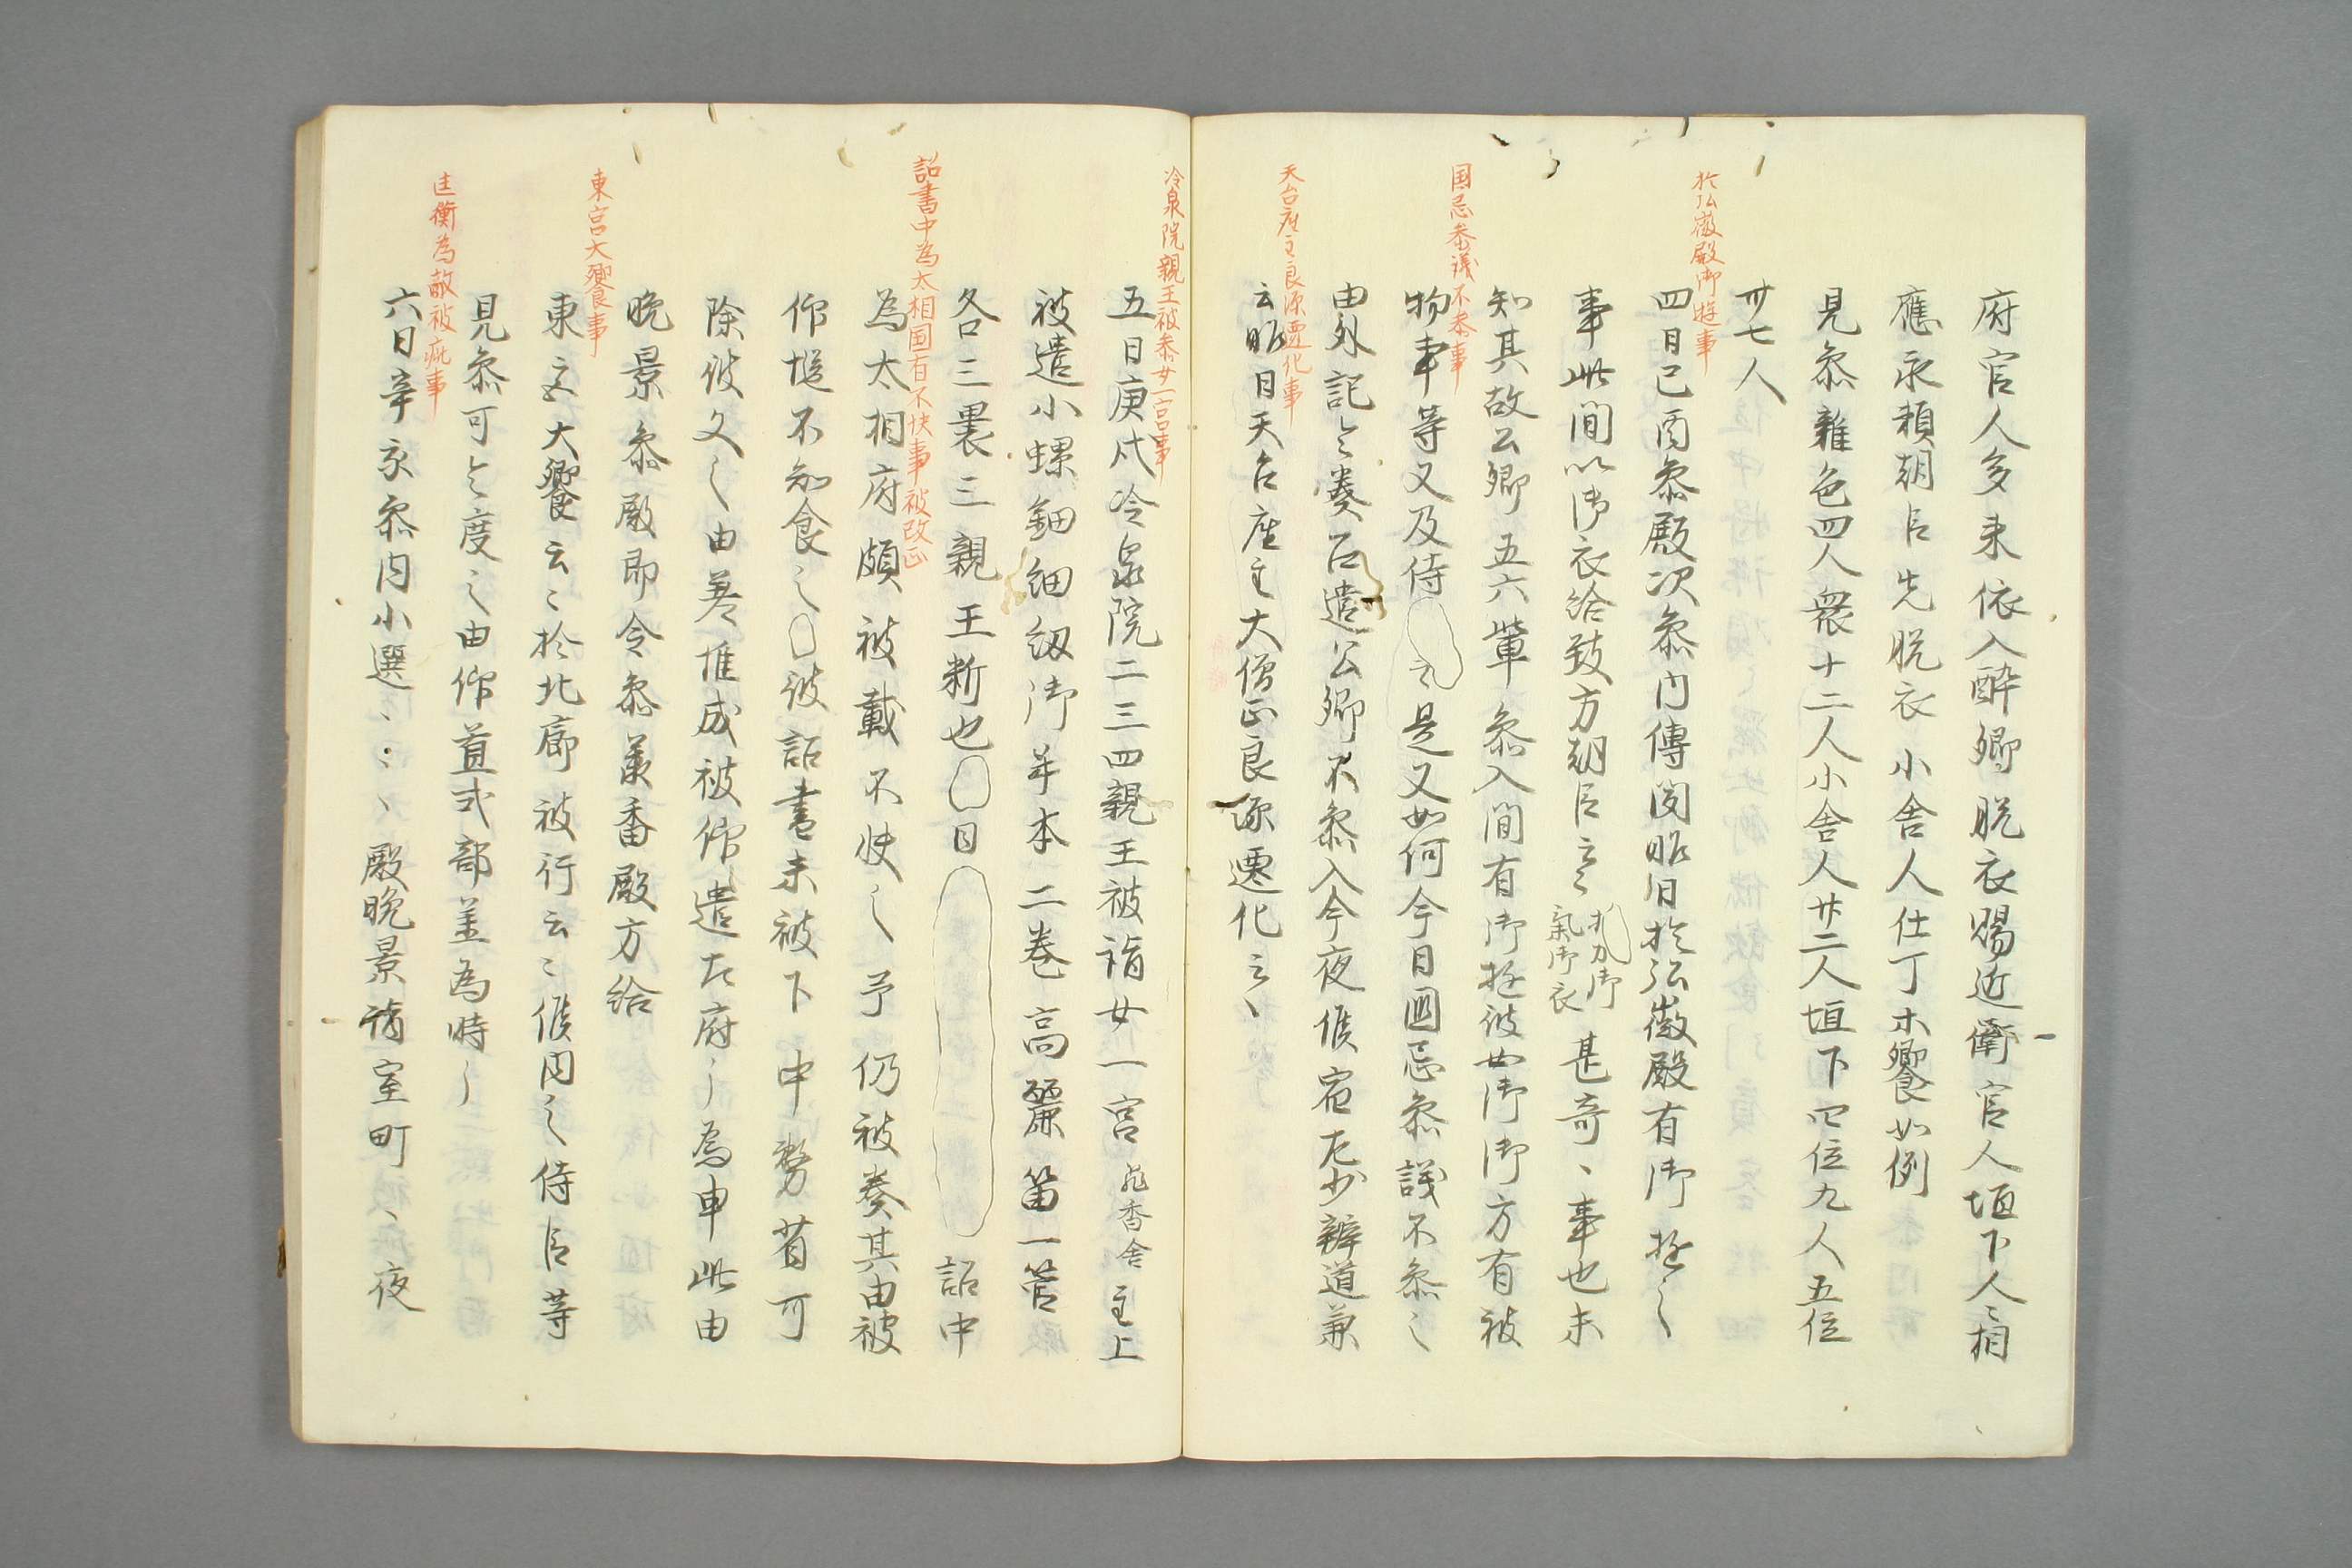 府官人多来依入酔卿脱衣賜近衛官人垣下人〻相
應永頼朝臣先脱衣小舎人仕丁木饗如例
見叅雑色四人衆十二人小舎人廿二人垣下四位九人五位
卅七人
於弘徽殿御遊事
四日己酉叅殿次叅内傳聞昨日於弘徽殿有御遊〻
事此間以御衣給致方朝臣云〻
氣御衣
甚奇〻事也未
知其故公卿五六輩叅入間有御遊彼女御御方有被
国忌参議不参事
物事等又及侍
云〻是又如何今日國忌叅議不叅之
由外記令奏召遣公卿不叅入今夜候宿左少辨道兼
天台座主良源遷化事
云昨日天台座主大僧正良源遷化云〻
冷泉院親王被参女一宮事
五日庚戌冷泉院二三四親王被詣女一宮 飛香舎 主上
被遣小螺鈿細釼御琴本二巻高麗笛一管
各三褁三親王新也 日 詔中
詔書中為太相国有不快事被改正
為太相府頗被載不快之予仍被奏其由被
仰惣不知食之 彼詔書未被下中務省可
除彼文之由差惟成被仰遣左府〻為申此由
晩景叅殿即令叅美番殿方給
東宮大饗事
東宮大饗云〻於北廊被行云〻候内之侍臣等
見叅可令度之由仰直式部丞為時〻
匡衡為敵被疵事
六日辛亥叅内小選、、、、殿晩景詣室町、夜